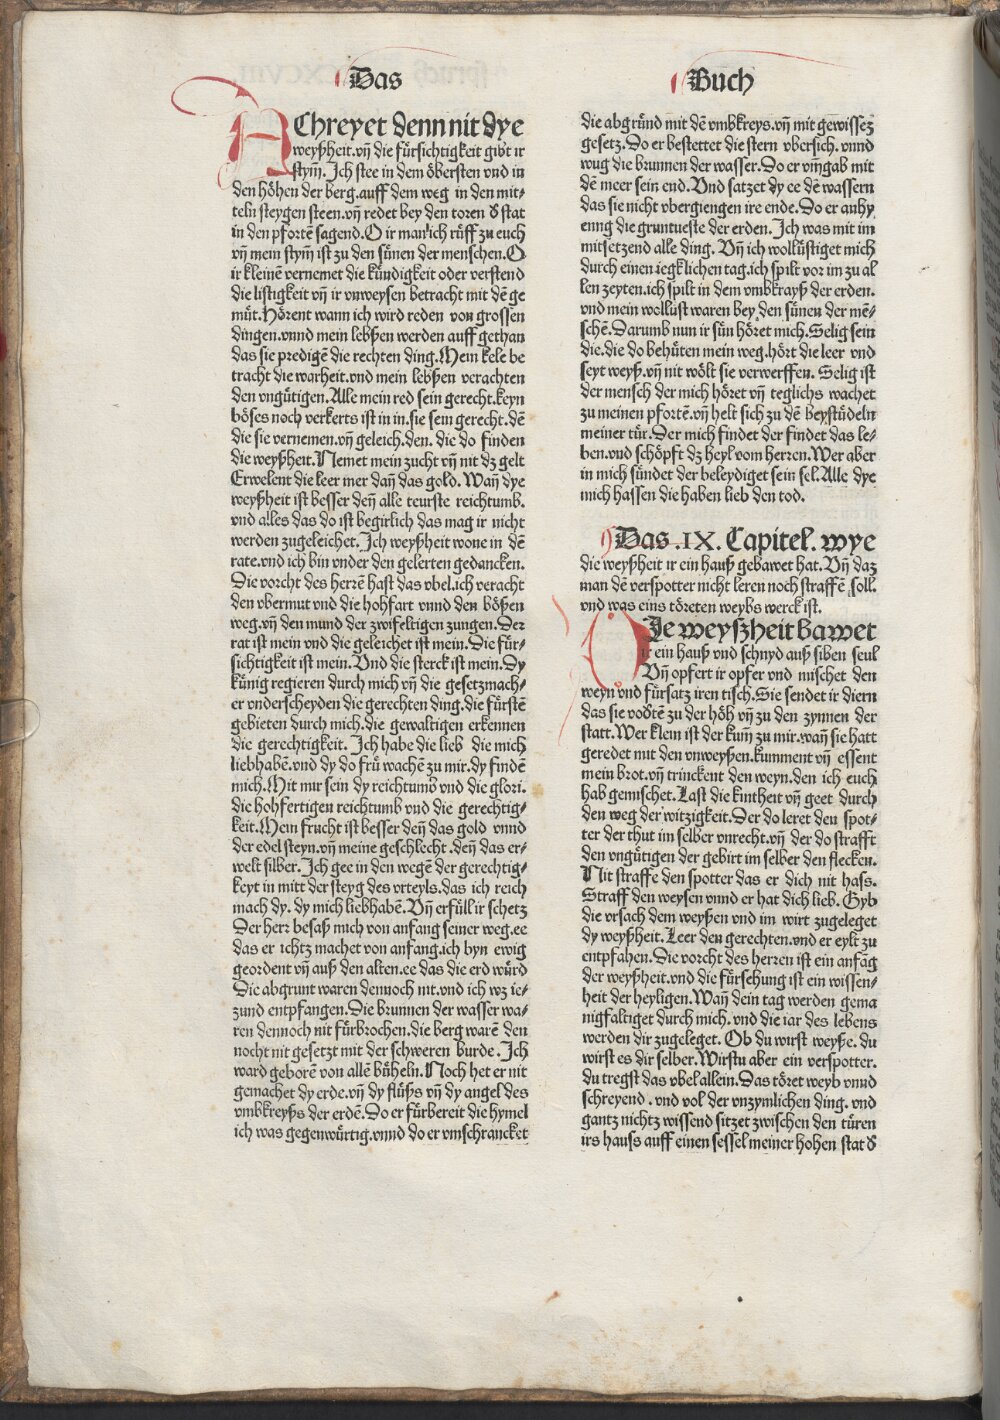 Das
Buch
AChreyet denn nit dye
weyßheit.vn̄ die fürsichtigkeit gibt ir
stym̄. Ich stee in dem öbersten vnd in
den höhen der berg.auff dem weg in den mit⸗
teln steygen steen.vn̄ redet bey den toren d̕ stat
in den pfortē sagend.O ir man ich rüff zu euch
vn̄ mein stym̄ ist zu den sünen der menschen.O
ir kleinē vernemet die kündigkeit oder verstend
die listigkeit vn̄ ir vnweysen betracht mit dē ge
müt.Hörent wann ich wird reden von grossen
dingen.vnnd mein lebßen werden auff gethan
das sie predigē die rechten ding.Mein kele be
tracht die warheit.vnd mein lebßen verachten
den vngütigen.Alle mein red sein gerecht.keyn
böses noch verkerts ist in in.sie sein gerecht.dē
die sie vernemen.vn̄ geleich.den. die do finden
die weyßheit.Nemet mein zucht vn̄ nit dz gelt
Erwelent die leer mer dan̄ das gold. Wan̄ dye
weyßheit ist besser den̄ alle teurste reichtumb.
vnd alles das do ist begirlich das mag ir nicht
werden zugeleichet.Ich weyßheit wone in dē
rate.vnd ich bin vnder den gelerten gedancken.
Die vorcht des herrē hast das vbel.ich veracht
den vbermut vnd die hohfart vnnd den bößen
weg.vn̄ den mund der zwifeltigen zungen.Der
rat ist mein vnd die geleichet ist mein.Die für⸗
sichtigkeit ist mein.Vnd die sterck ist mein.Dy
künig regieren durch mich vn̄ die gesetzmach⸗
er vnderscheyden die gerechten ding.die fürstē
gebieten durch mich.die gewaltigen erkennen
die gerechtigkeit. Ich habe die lieb die mich
liebhabē.vnd dy do frü wachē zu mir.dy findē
mich.Mit mir sein dy reichtumb vnd die glori.
die hohfertigen reichtumb vnd die gerechtig⸗
keit.Mein frucht ist besser den̄ das gold vnnd
der edel steyn.vn̄ meine geschlecht.den̄ das er⸗
welt silber.Ich gee in den wegē der gerechtig⸗
keyt in mitt der steyg des vrteyls.das ich reich
mach dy. dy mich liebhabē.Vn̄ erfüll ir schetz
Der herr besaß mich von anfang seiner weg.ee
das er ichtz machet von anfang.ich byn ewig
geordent vn̄ auß den alten.ee das die erd würd
Die abgrunt waren dennoch nit.vnd ich wz ie⸗
zund entpfangen.Die brunnen der wasser wa⸗
ren dennoch nit fürbrochen.die berg warē den
nocht nit gesetzt mit der schweren burde. Ich
ward geborē von allē büheln.Noch het er nit
gemachet dy erde.vn̄ dy flüßs vn̄ dy angel des
vmbkreyßs der erdē.Do er fürbereit die hymel
ich was gegenwürtig.vnnd do er vmschrancket
die abgründ mit dē vmbkreys.vn̄ mit gewissez
gesetz.Do er bestettet die stern vbersich. vnnd
wug die brunnen der wasser.Do er vm̄gab mit
dē meer sein end.Vnd satzet dy ee dē wassern
das sie nicht vbergiengen ire ende.Do er auhy
enng die gruntueste der erden.Ich was mit im
mitsetzend alle ding. Vn̄ ich wollüstiget mich
durch einen iegklichen tag.ich spilt vor im zu al
len zeyten.ich spilt in dem vmbkrayß der erden.
vnd mein wollüst waren bey den sünen der mē⸗
schē.Darumb nun ir sün höret mich.Selig sein
die.die do behüten mein weg.hört die leer vnd
seyt weyß.vn̄ nit wölt sie verwerffen. Selig ist
der mensch der mich höret vn̄ teglichs wachet
zu meinen pfortē.vn̄ helt sich zu dē beystüdeln
meiner tür.Der mich findet der findet das le⸗
ben.vnd schöpft dz heyl vom herren.Wer aber
in mich sündet der beleydiget sein sel.Alle dye
mich hassen die haben lieb den tod.
Das .IX. Capitel. wye
die weyßheit ir ein hauß gebawet hat. Vn̄ daz
man dē verspotter nicht leren noch straffē soll.
vnd was eins töreten weybs werck ist.
DJe weyßheit bawet
ir ein hauß vnd schnyd auß siben seul
Vn̄ opfert ir opfer vnd mischet den
weyn vnd fürsatz iren tisch.Sie sendet ir diern
das sie vod̕tē zu der höh vn̄ zu den zynnen der
statt.Wer klein ist der kum̄ zu mir.wan̄ sie hatt
geredet mit den vnweysen.kumment vn̄ essent
mein brot.vn̄ trinckent den weyn.den ich euch
hab gemischet.Last die kintheit vn̄ geet durch
den weg der witzigkeit.Der do leret den spot⸗
ter der thut im selber vnrecht.vn̄ der do strafft
den vngütigen der gebirt im selber den flecken.
Nit straffe den spotter das er dich nit hass.
Straff den weysen vnnd er hat dich lieb. Gyb
die vrsach dem weyßen vnd im wirt zugeleget
dy weyßheit.Leer den gerechten.vnd er eylt zu
entpfahen.Die vorcht des herren ist ein anfāg
der weyßheit.vnd die fürsehung ist ein wissen⸗
heit der heyligen.Wan̄ dein tag werden gema
nigfaltiget durch mich.vnd die iar des lebens
werden dir zugeleget. Ob du wirst weyße.du
wirst es dir selber.Wirstu aber ein verspotter.
du tregst das vbel allein.Das töret weyb vnnd
schreyend.vnd vol der vnzymlichen ding.vnd
gantz nichtz wissend sitzet zwischen den türen
irs hauss auff einen sessel meiner hohen stat d̕